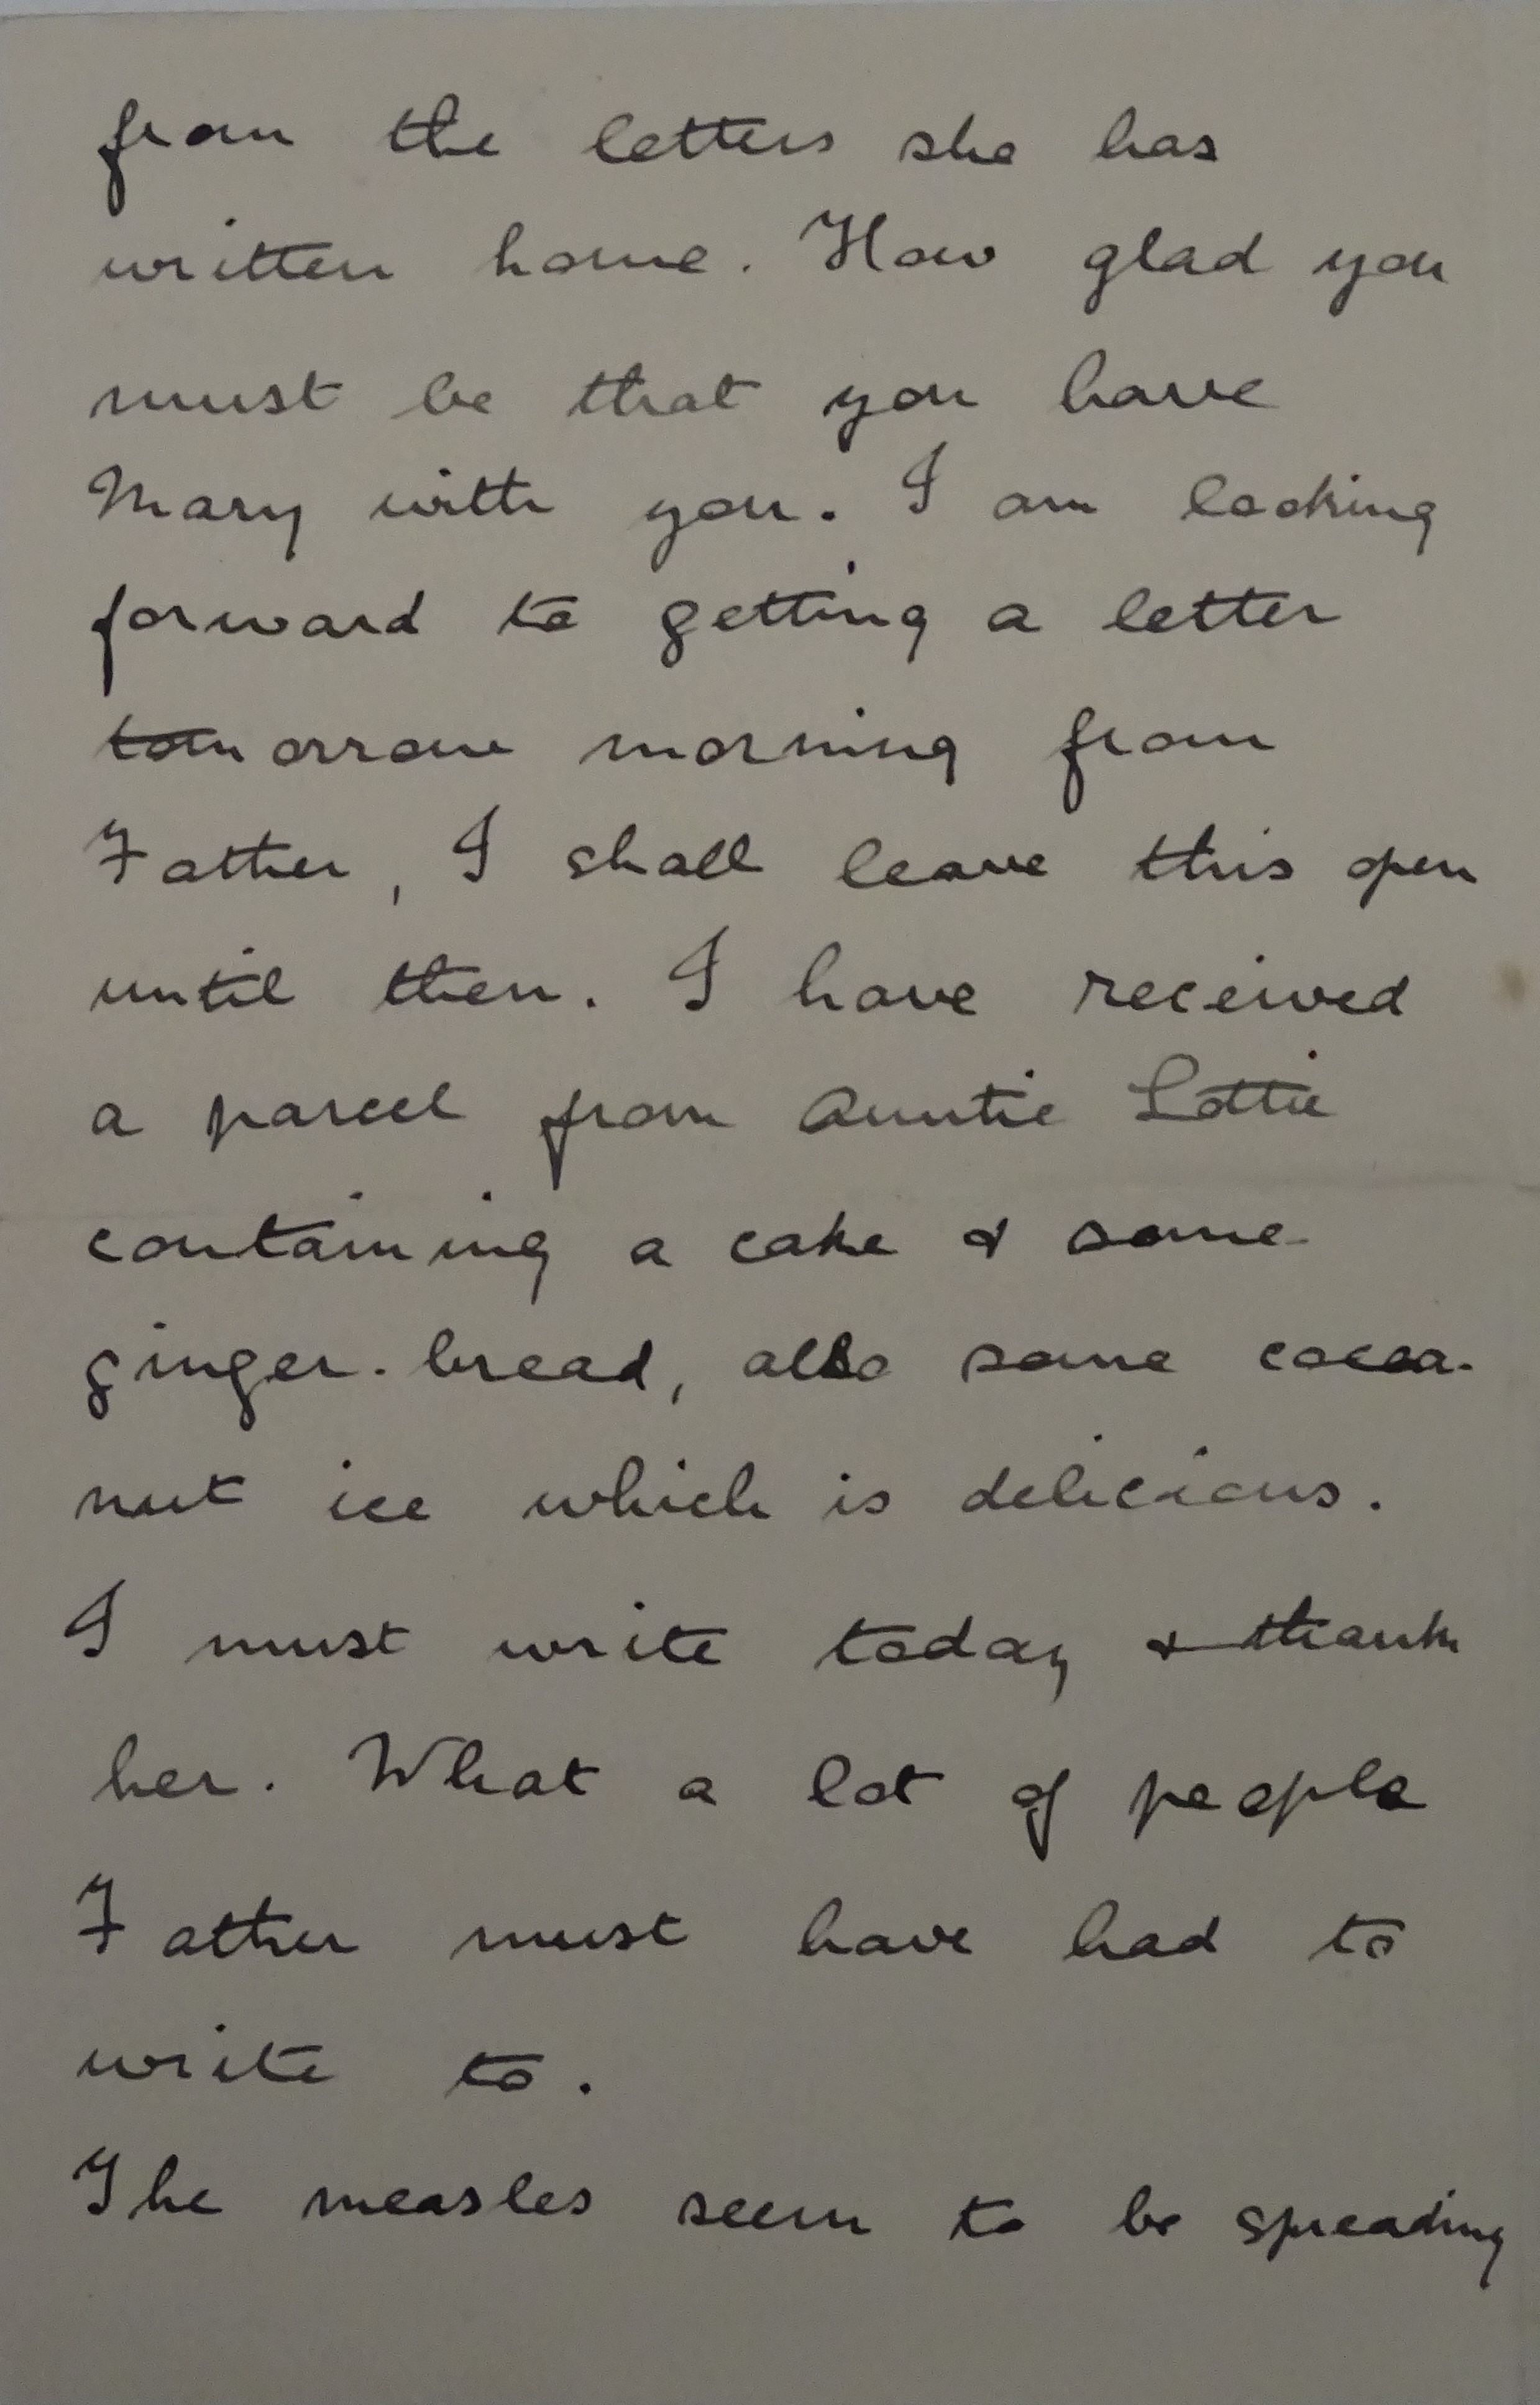 from the letters she has
written home. How glad you
must be that you have
Mary with you. I am looking
forward to getting a letter
tomorrow morning from
Father, I shall leave this open
until then. I have received
a parcel from Auntie Lottie
containing a cake & some
ginger-bread, also some cocoa-
nut ice which is delicious.
I must write today & thank
her. What a lot of people
Father must have had to
write to.
The measles seem to be spreading